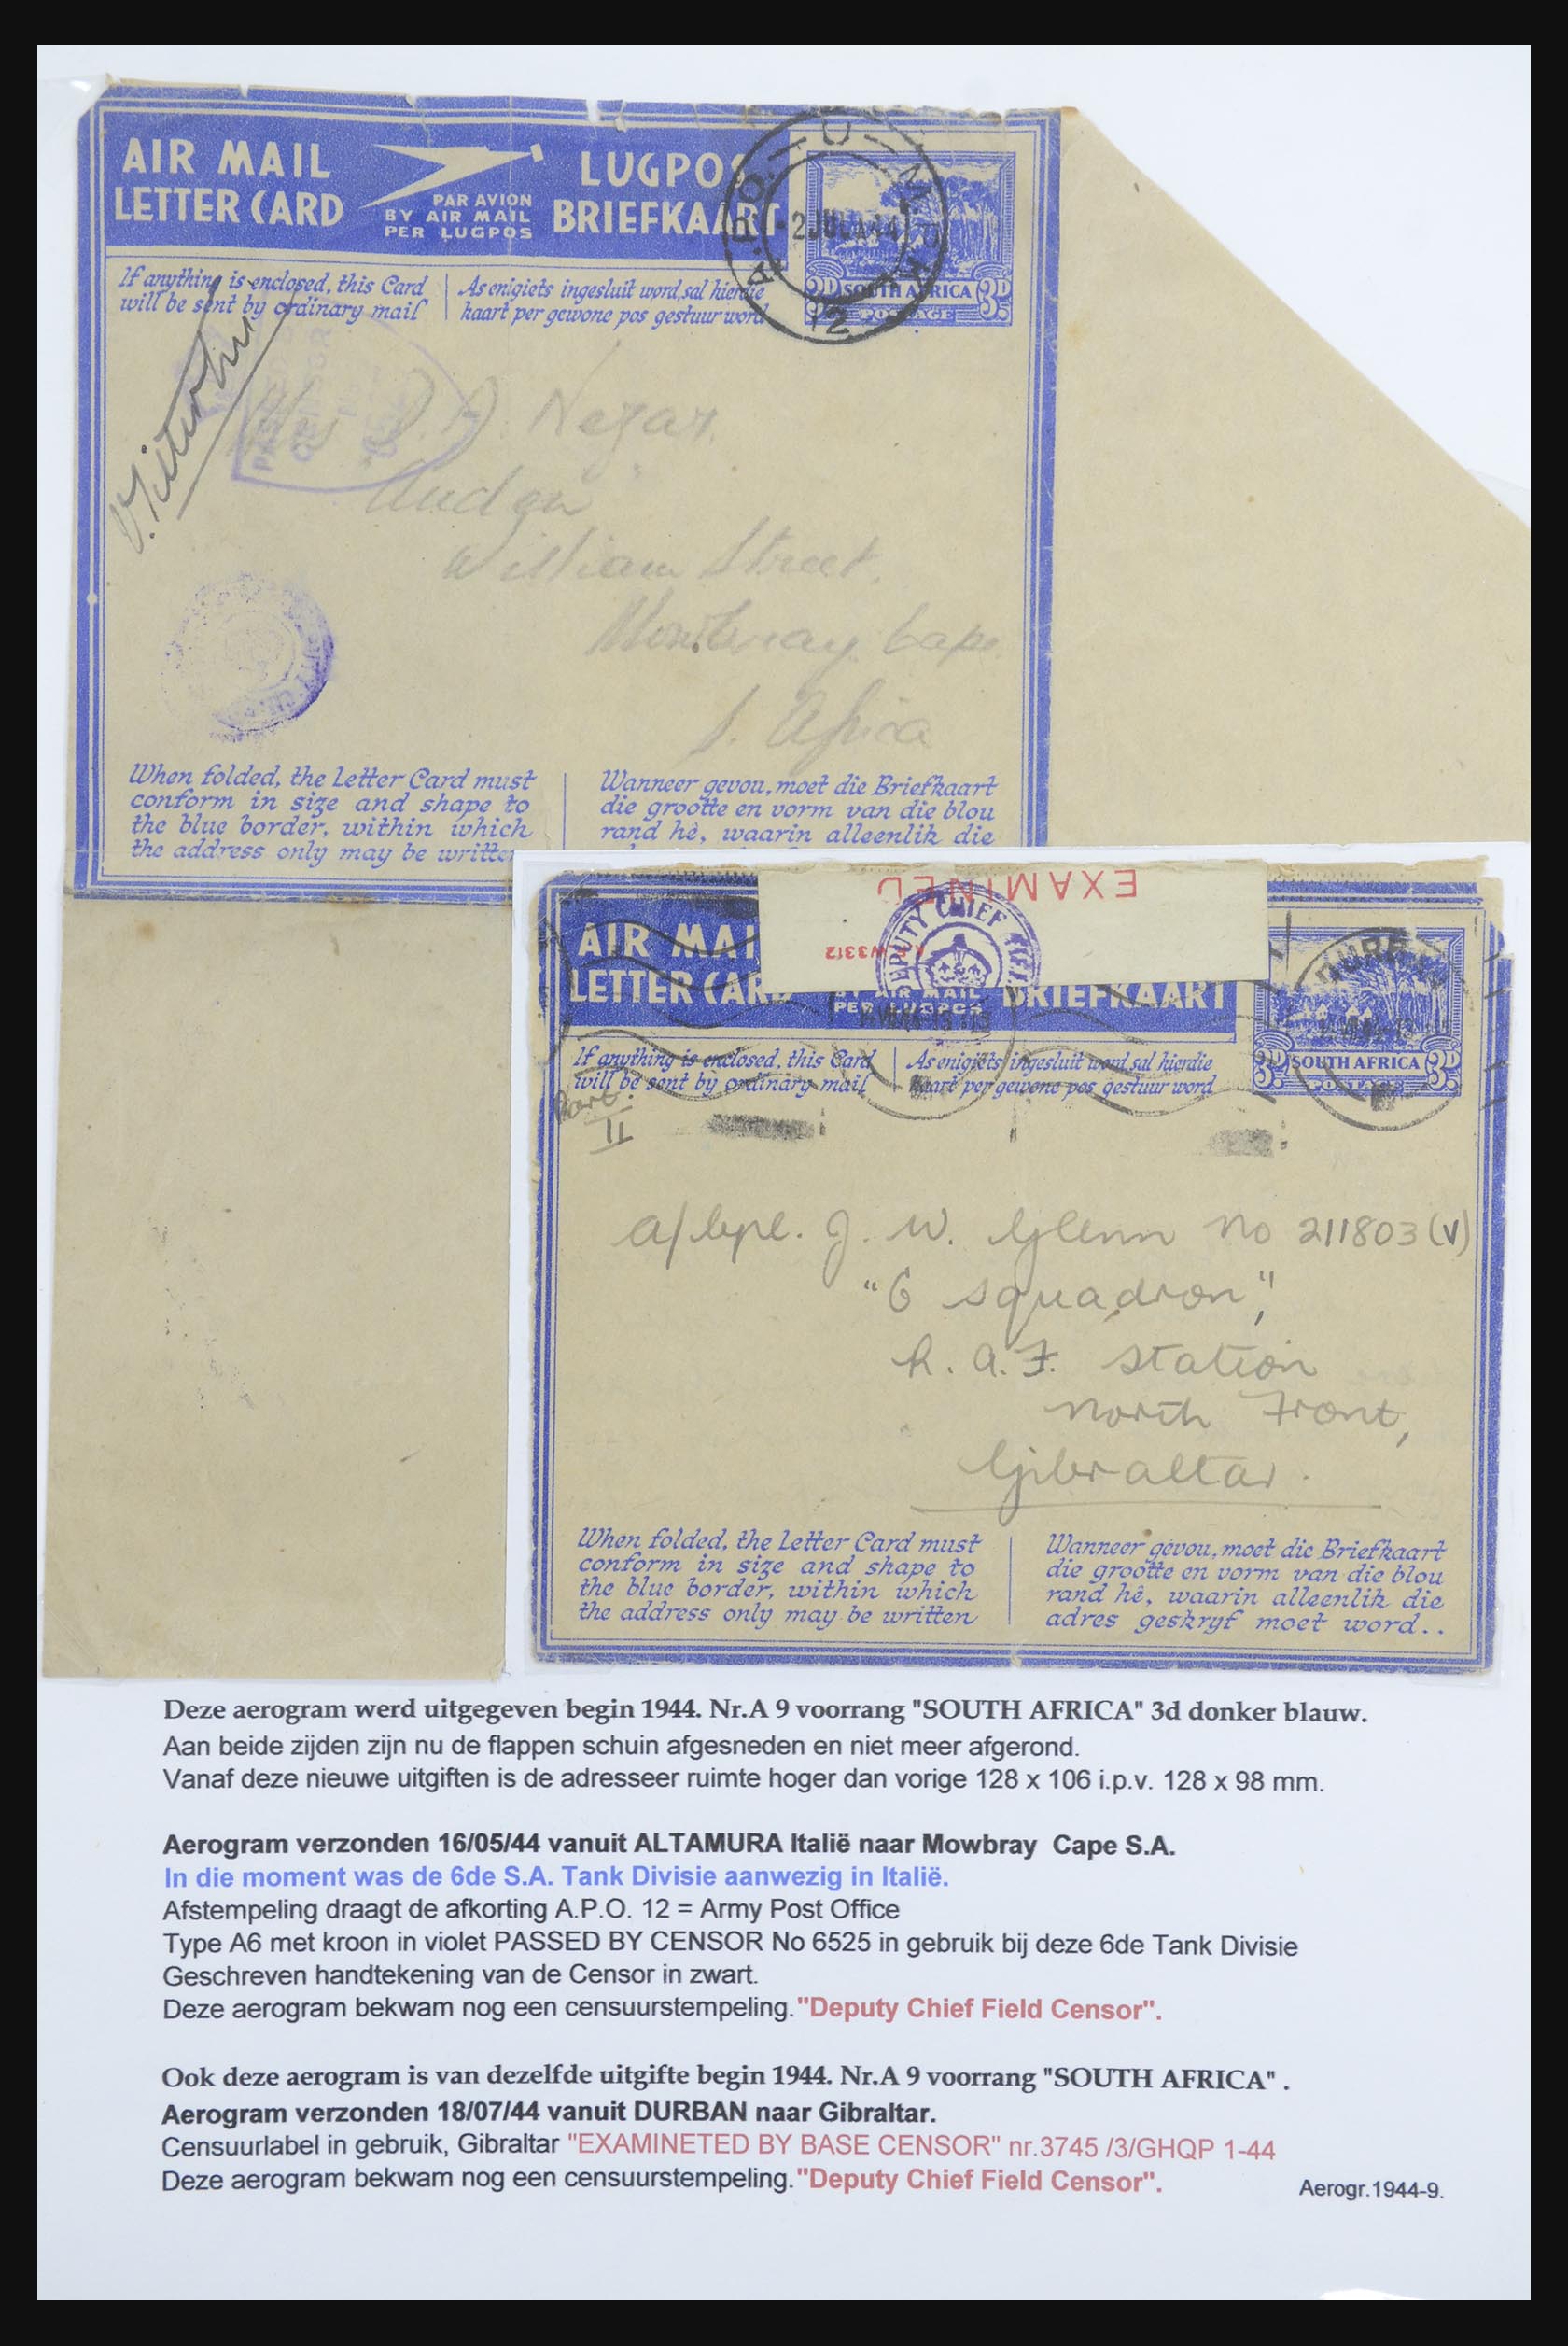 AIR MAIL
LETTER CARD
PAR AVION
BY AIR MAIL
PER LUGPOS
LUGPOS
BRIEFKAART
A.P.O. - U - M.P.K. 12
2 JUL 44
3D SOUTH AFRICA 3D
POSTAGE
If anything is enclosed, this Card
will be sent by ordinary mail
As enigiets ingesluit word, sal hierdie
kaart per gewone pos gestuur word
PASSED
CENSOR
William Street,
Cape
S. Africa
When folded, the Letter Card must
conform in size and shape to
the blue border, within which
the address only may be written
Wanneer gevou, moet die Briefkaart
die grootte en vorm van die blou
rand hê, waarin alleenlik die
EXAMINED
W3312
DEPUTY CHIEF FIEL
AIR MAI
LETTER CARD
BY AIR MAIL
PER LUGPOS
BRIEFKAART
DURB
SOUTH AFRICA 3D
POSTAGE
If anything is enclosed, this Card
will be sent by ordinary mail
As enigiets ingesluit word, sal hierdie
kaart per gewone pos gestuur word
Part
II
A/Cpl. J. W. Glenn No 211803 (V)
"6 Squadron",
R. A. F. Station
North Front,
Gibraltar.
When folded, the Letter Card must
conform in size and shape to
the blue border, within which
the address only may be written
Wanneer gevou, moet die Briefkaart
die grootte en vorm van die blou
rand hê, waarin alleenlik die
adres geskryf moet word..
Deze aerogram werd uitgegeven begin 1944. Nr.A 9 voorrang "SOUTH AFRICA" 3d donker blauw.
Aan beide zijden zijn nu de flappen schuin afgesneden en niet meer afgerond.
Vanaf deze nieuwe uitgiften is de adresseer ruimte hoger dan vorige 128 x 106 i.p.v. 128 x 98 mm.
Aerogram verzonden 16/05/44 vanuit ALTAMURA Italië naar Mowbray Cape S.A.
In die moment was de 6de S.A. Tank Divisie aanwezig in Italië.
Afstempeling draagt de afkorting A.P.O. 12 = Army Post Office
Type A6 met kroon in violet PASSED BY CENSOR No 6525 in gebruik bij deze 6de Tank Divisie
Geschreven handtekening van de Censor in zwart.
Deze aerogram bekwam nog een censuurstempeling."Deputy Chief Field Censor".
Ook deze aerogram is van dezelfde uitgifte begin 1944. Nr.A 9 voorrang "SOUTH AFRICA" .
Aerogram verzonden 18/07/44 vanuit DURBAN naar Gibraltar.
Censuurlabel in gebruik, Gibraltar "EXAMINETED BY BASE CENSOR" nr.3745 /3/GHQP 1-44
Deze aerogram bekwam nog een censuurstempeling."Deputy Chief Field Censor".
Aerogr.1944-9.